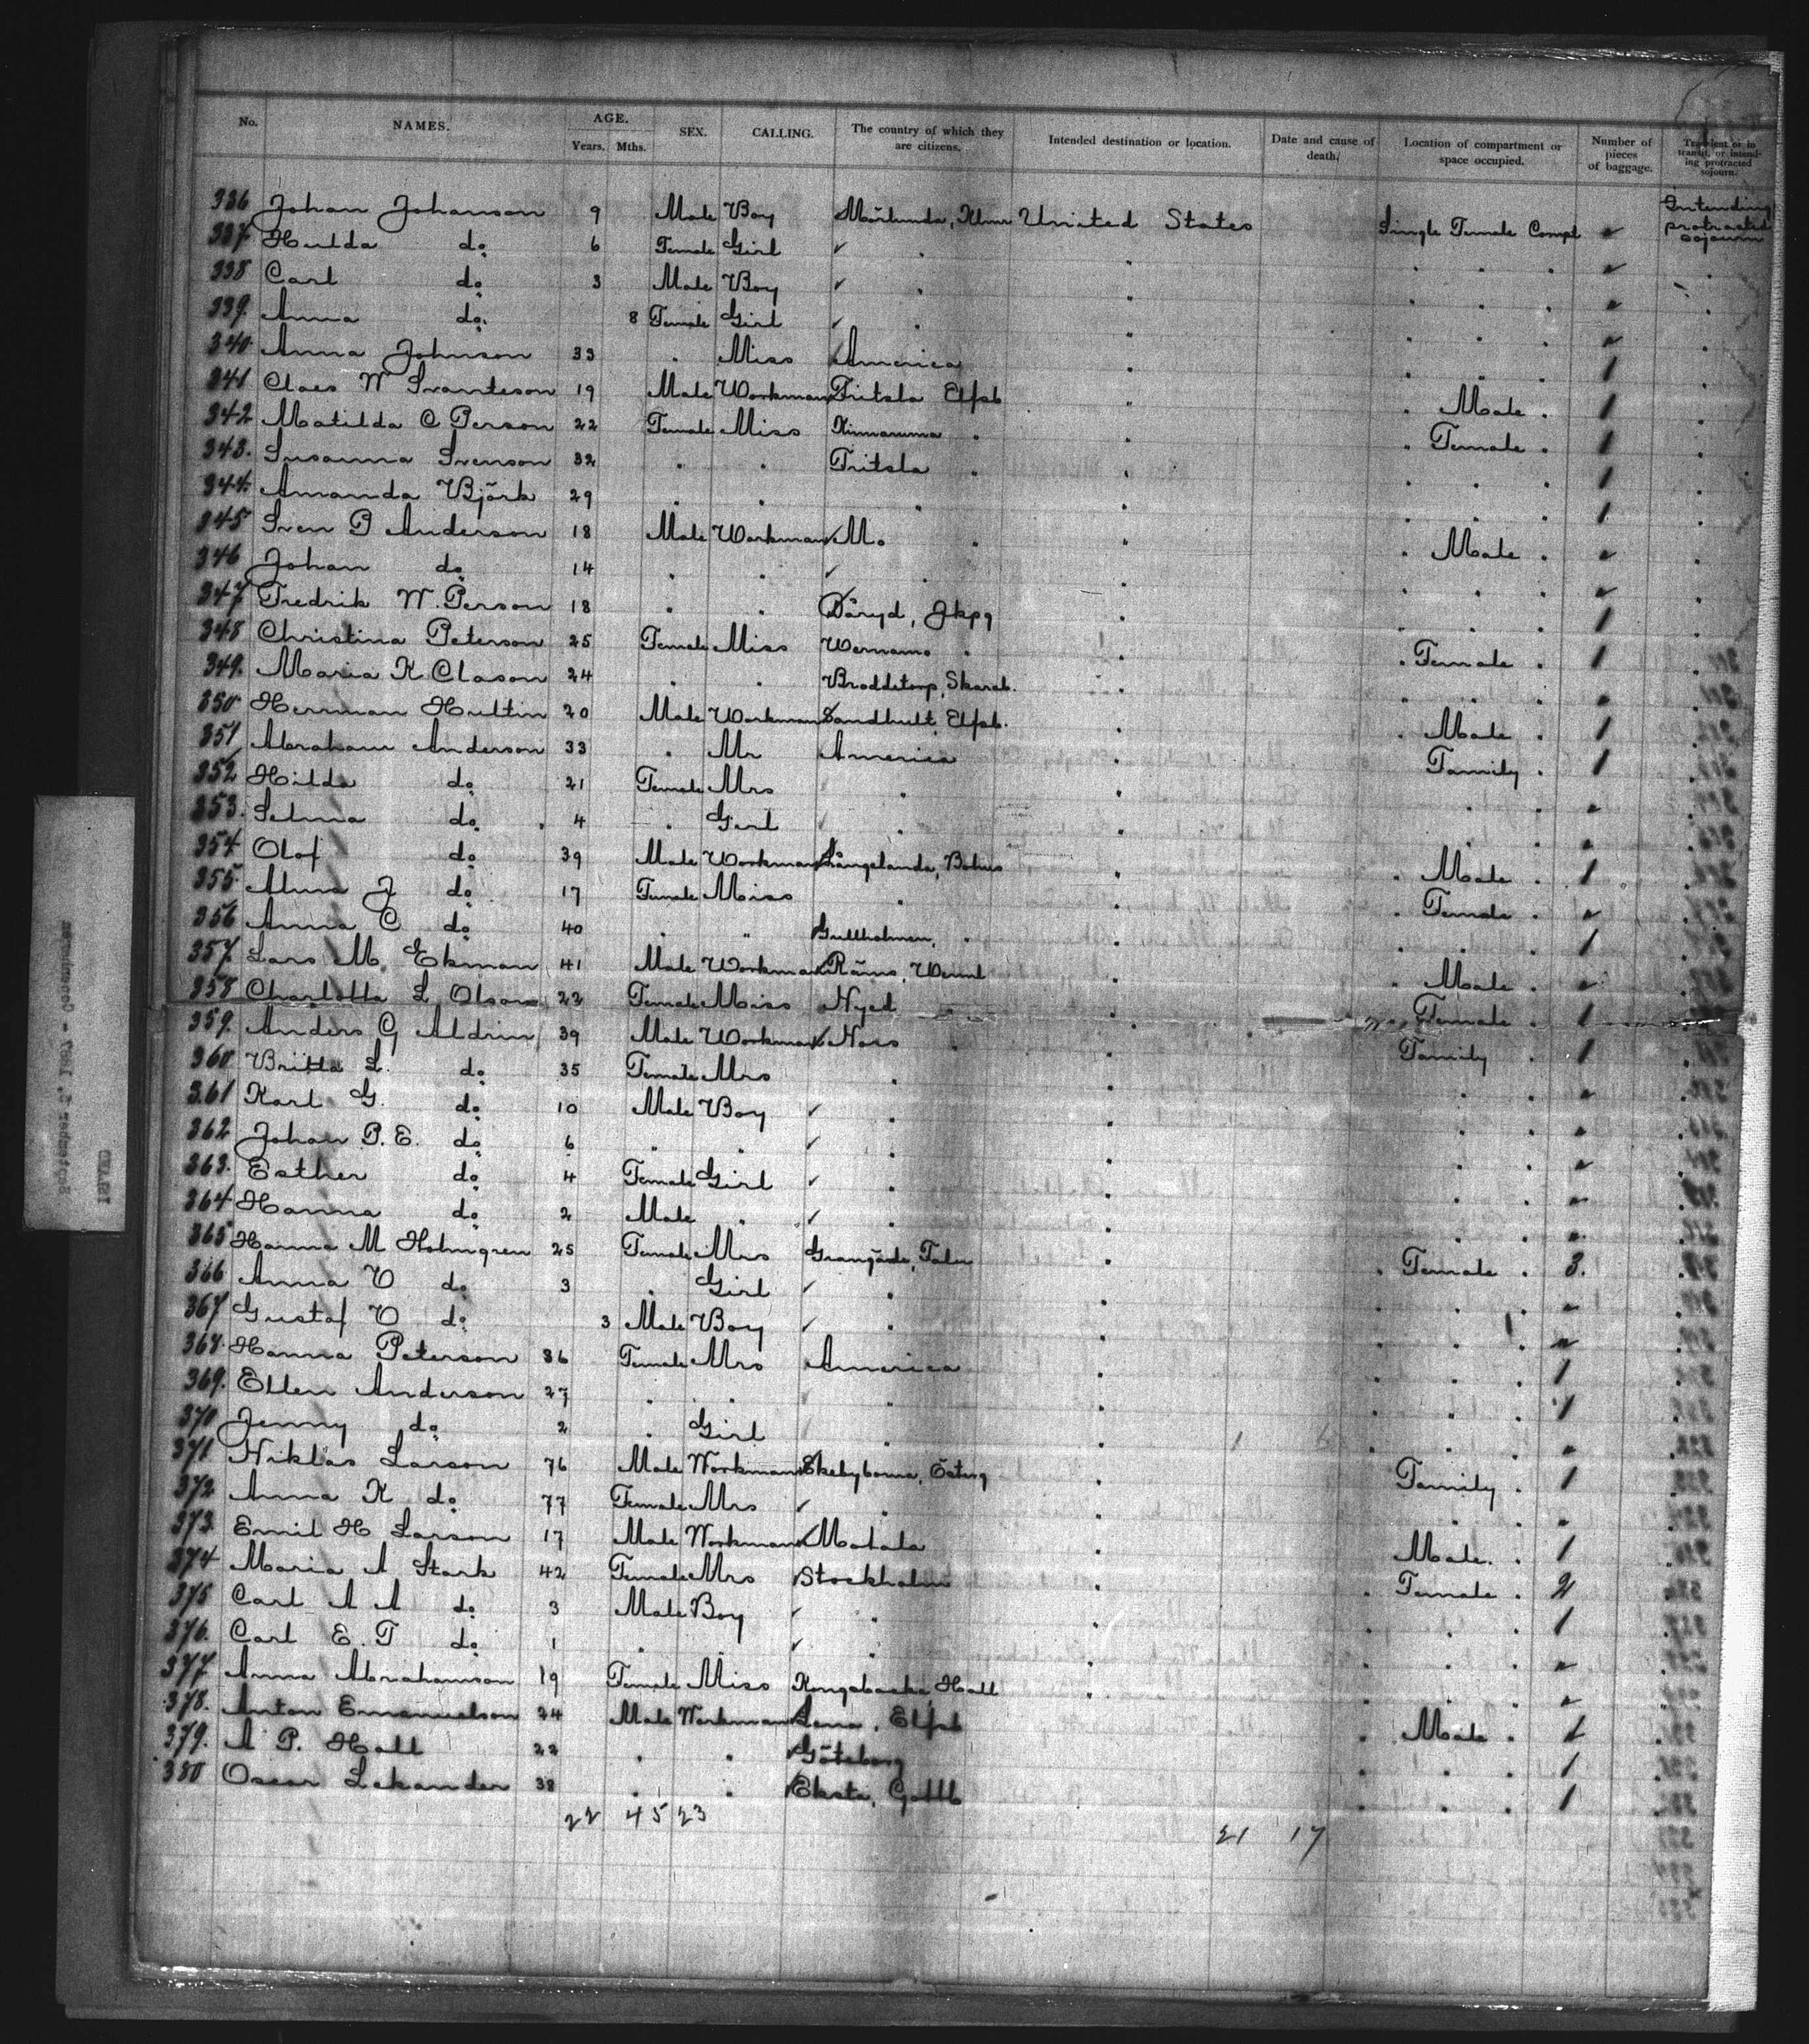 No. NAMES. AGE. Years. Mths. SEX. CALLING. The country of which they are citizens. Intended destination or location. Date and cause of death. Location of compartment or space occupied. Number of pieces of baggage. Transient or in transit, or intending protracted sojourn.
336 Johan Johanson 9 Male Boy United States Single Female Compt Intending protracted sojourn
337 Hulda do 6 Female Girl
338 Carl do 3 Male Boy
339. Anna do. 8 Female Girl
340 Anna Johnson 33 " Miss America 1
341 Claes W Svanteson 19 Male Workman Fritsla Elfsb " Male " 1
342 Matilda C Person 22 Female Miss Kinnaruma " " Female " 1
343. Susanna Svenson 32 " " Fritsla " 1
344. Amanda Björk 29 " " " 1
345 Sven P Anderson 18 Male Workman Mo " " Male "
346 Johan do 14 " " "
347 Fredrik W. Person 18 " " Båryd, Jkpg 1
348 Christina Peterson 25 Female Miss Wernamo " " Female " 1
349. Maria K Clason 24 " " Broddetorp, Skarab.
350 Herman Hultin 20 Male Workman Sandhult, Elfsb. " Male " 1
351 Abraham Anderson 33 " Mr America Family " 1
352 Hilda do 21 Female Mrs "
353. Selma do 4 " Girl "
354 Olof do 39 Male Workman Långelanda, Bohus " Male " 1
355. Alma J do 17 Female Miss " " Female "
356 Anna C do 40 " " Gullholmen, " 1
357. Lars M. Ekman 41 Male Workman Räms, Werml " Male "
358 Charlotta L Olson 22 Female Miss Nyed " Female " 1
359. Anders G Aldrin 39 Male Workman Nors " Family " 1
360 Britta L. do 35 Female Mrs "
361 Karl G. do 10 Male Boy "
362 Johan P. E. do 6 " " "
363. Esther do 4 Female Girl "
364 Hanna do 2 Male " "
365 Hanna M Holmgren 25 Female Mrs Grangärde, Falun " Female " 3.
366 Anna V do 3 " Girl "
367 Gustaf V do 3 Male Boy "
368. Hanna Peterson 36 Female Mrs America 1
369. Ellen Anderson 27 " " " 1
370 Jenny do 2 " Girl "
371 Niklas Larson 76 Male Workman Skebyborna, Österg Family " 1
372 Anna K do 77 Female Mrs "
373. Emil H Larson 17 Male Workman Motala Male " 1
374 Maria A Stark 42 Female Mrs Stockholm " Female " 2
375 Carl A A do 3 Male Boy " 1
376. Carl E. T do 1 " " "
377 Anna Abrahamson 19 Female Miss Kongsbacka Hall
378. Anton Emanuelson 24 Male Workman Lena, Elfsb " Male " 1
379. A P. Hall 22 " " Göteborg 1
380 Oscar Lekander 38 " " Eksta, Gottl 1
22 45 23 21 17